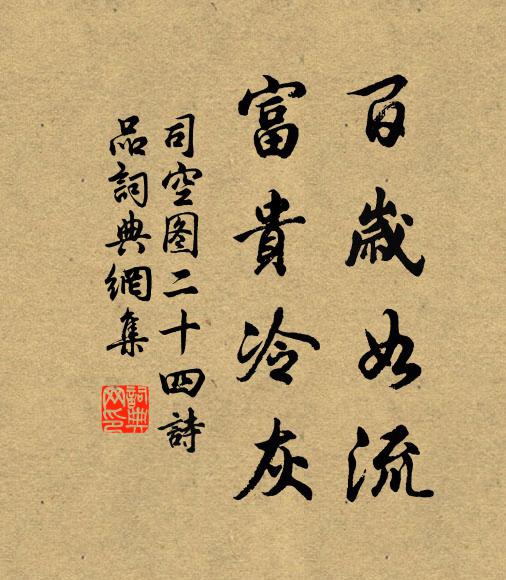 百歲如流
富貴冷灰
司空图二十四詩
品詞典網集
詞典
网印